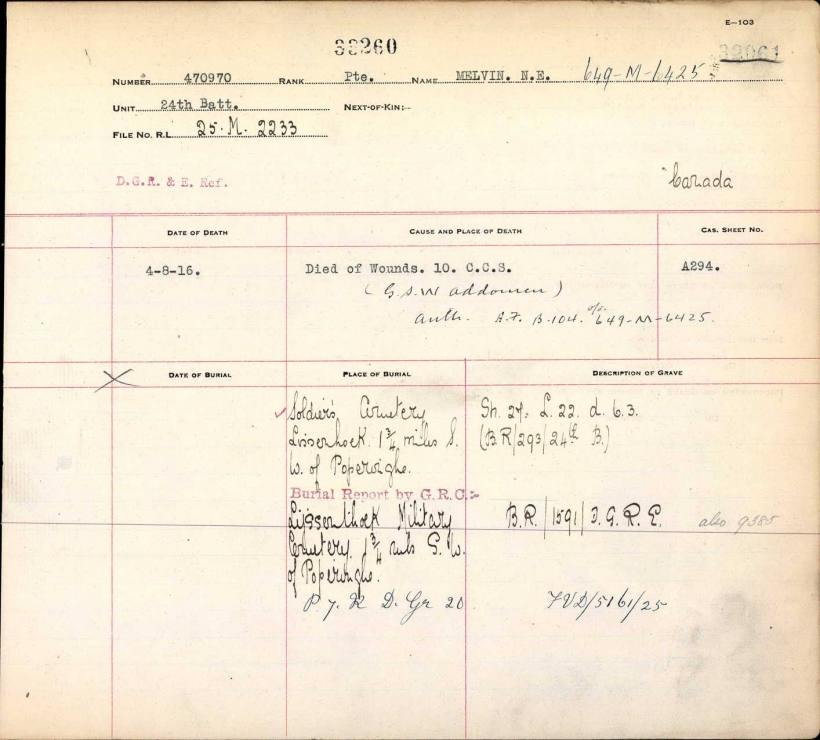 E—103
38260
32061
NUMBER 470970 RANK Pte. NAME MELVIN. N.E. 649-M-6425
UNIT 24th Batt. NEXT-OF-KIN:—
FILE NO. R.L. 25.M. 2233
D.G.R. & E. Ref.
Canada
DATE OF DEATH CAUSE AND PLACE OF DEATH CAS. SHEET NO.
4-8-16. Died of Wounds. 10. C.C.S. A294.
(G.S.W addomen)
auth. A.F. B.104. 649-M-6425.
DATE OF BURIAL PLACE OF BURIAL DESCRIPTION OF GRAVE
Soldier's Cemetery Sh. 27. L. 22. d. 6.3.
Lissenhoek. 1 3/4 miles S. (B.R/293/24th B.)
W. of Poperinghe.
Burial Report by G.R.C:-
Lijssenthoek Military B.R./1591/D.G.R.E. also 9385
Cemetery. 1 3/4 mls S.W.
of Poperinghe.
P 7. R D. Gr 20